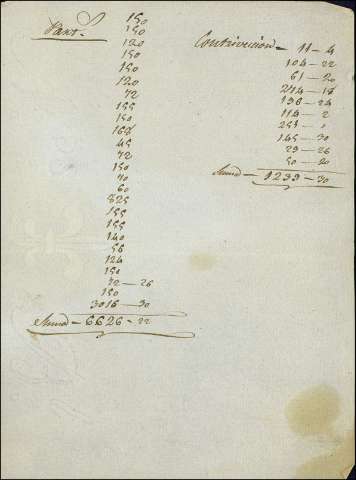 150
150
120
150
150
120
72
155
150
165
45
72
150
70
60
825
155
155
140
56
124
150
72 — 26
150
3016 — 30
Suma — 6626 — 22
Contrivucion — 11 — 4
104 — 22
61 — 20
214 — 18
196 — 24
114 — 2
251 — 0
145 — 30
29 — 26
50 — 20
Suma — 1239 — 30